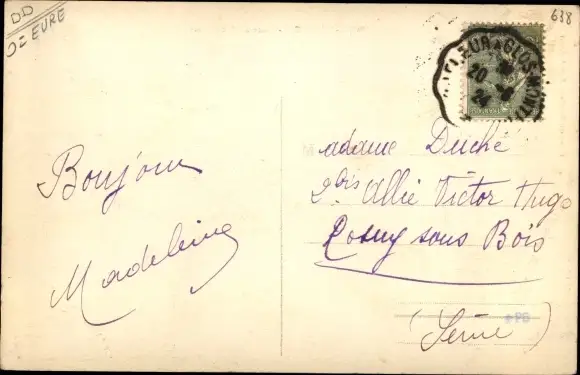 DD
D= EURE
638
FLEUR A GLOS-MONTF
20
24
Bonjour
Madeleine
adame Duché
2bis Allée Victor Hugo
Rosny sous Bois
(Seine)
PB